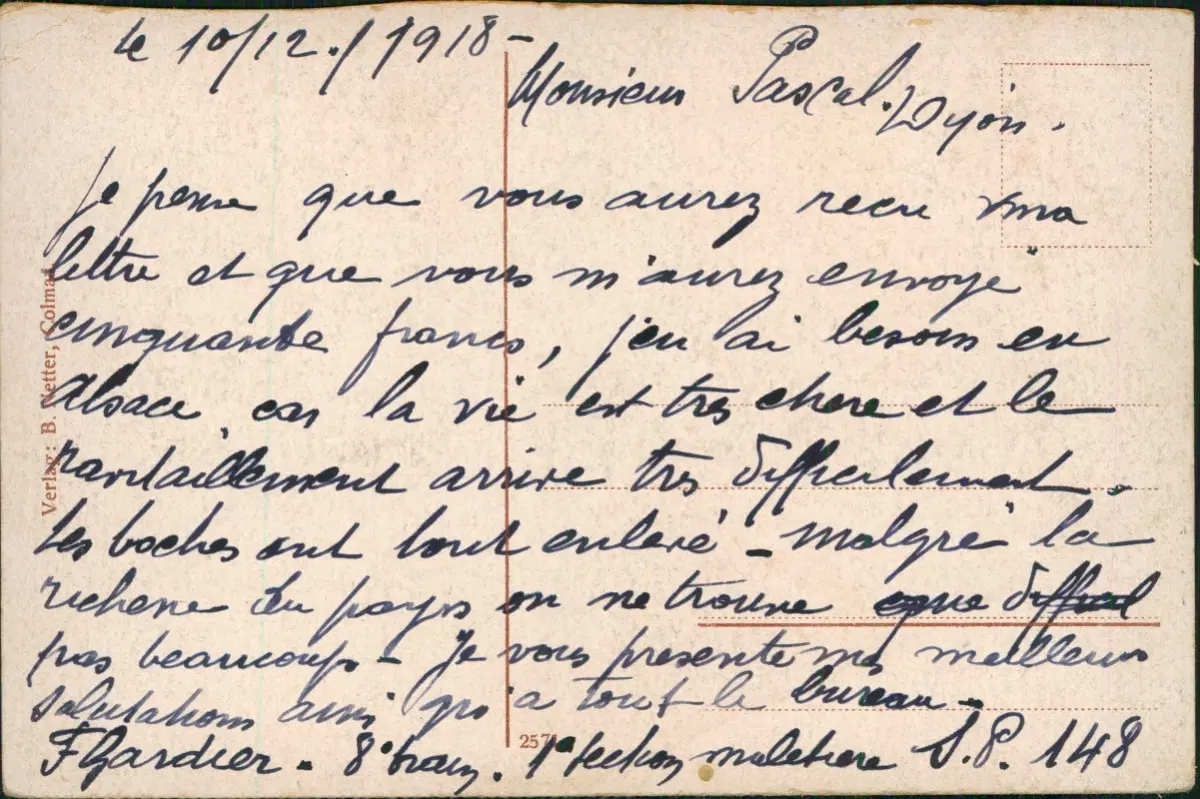 le 10/12./1918-
Monsieur Pascal. Lyon.
Je pense que vous aurez recu ma
lettre et que vous m'aurez envoyé
cinquante francs, j'en ai besoin en
Alsace car la vie est tres chere et le
ravitaillement arrive tres difficilement.
Les boches ont tout enlevé - malgré la
richesse du pays on ne trouve que difficil
pas beaucoup - Je vous presente mes meilleurs
salutations ainsi qu'a tout le bureau -
F Gardier - 8e train. 1e section muletiere S.P. 148
Verlag: B. Netter, Colmar
2571